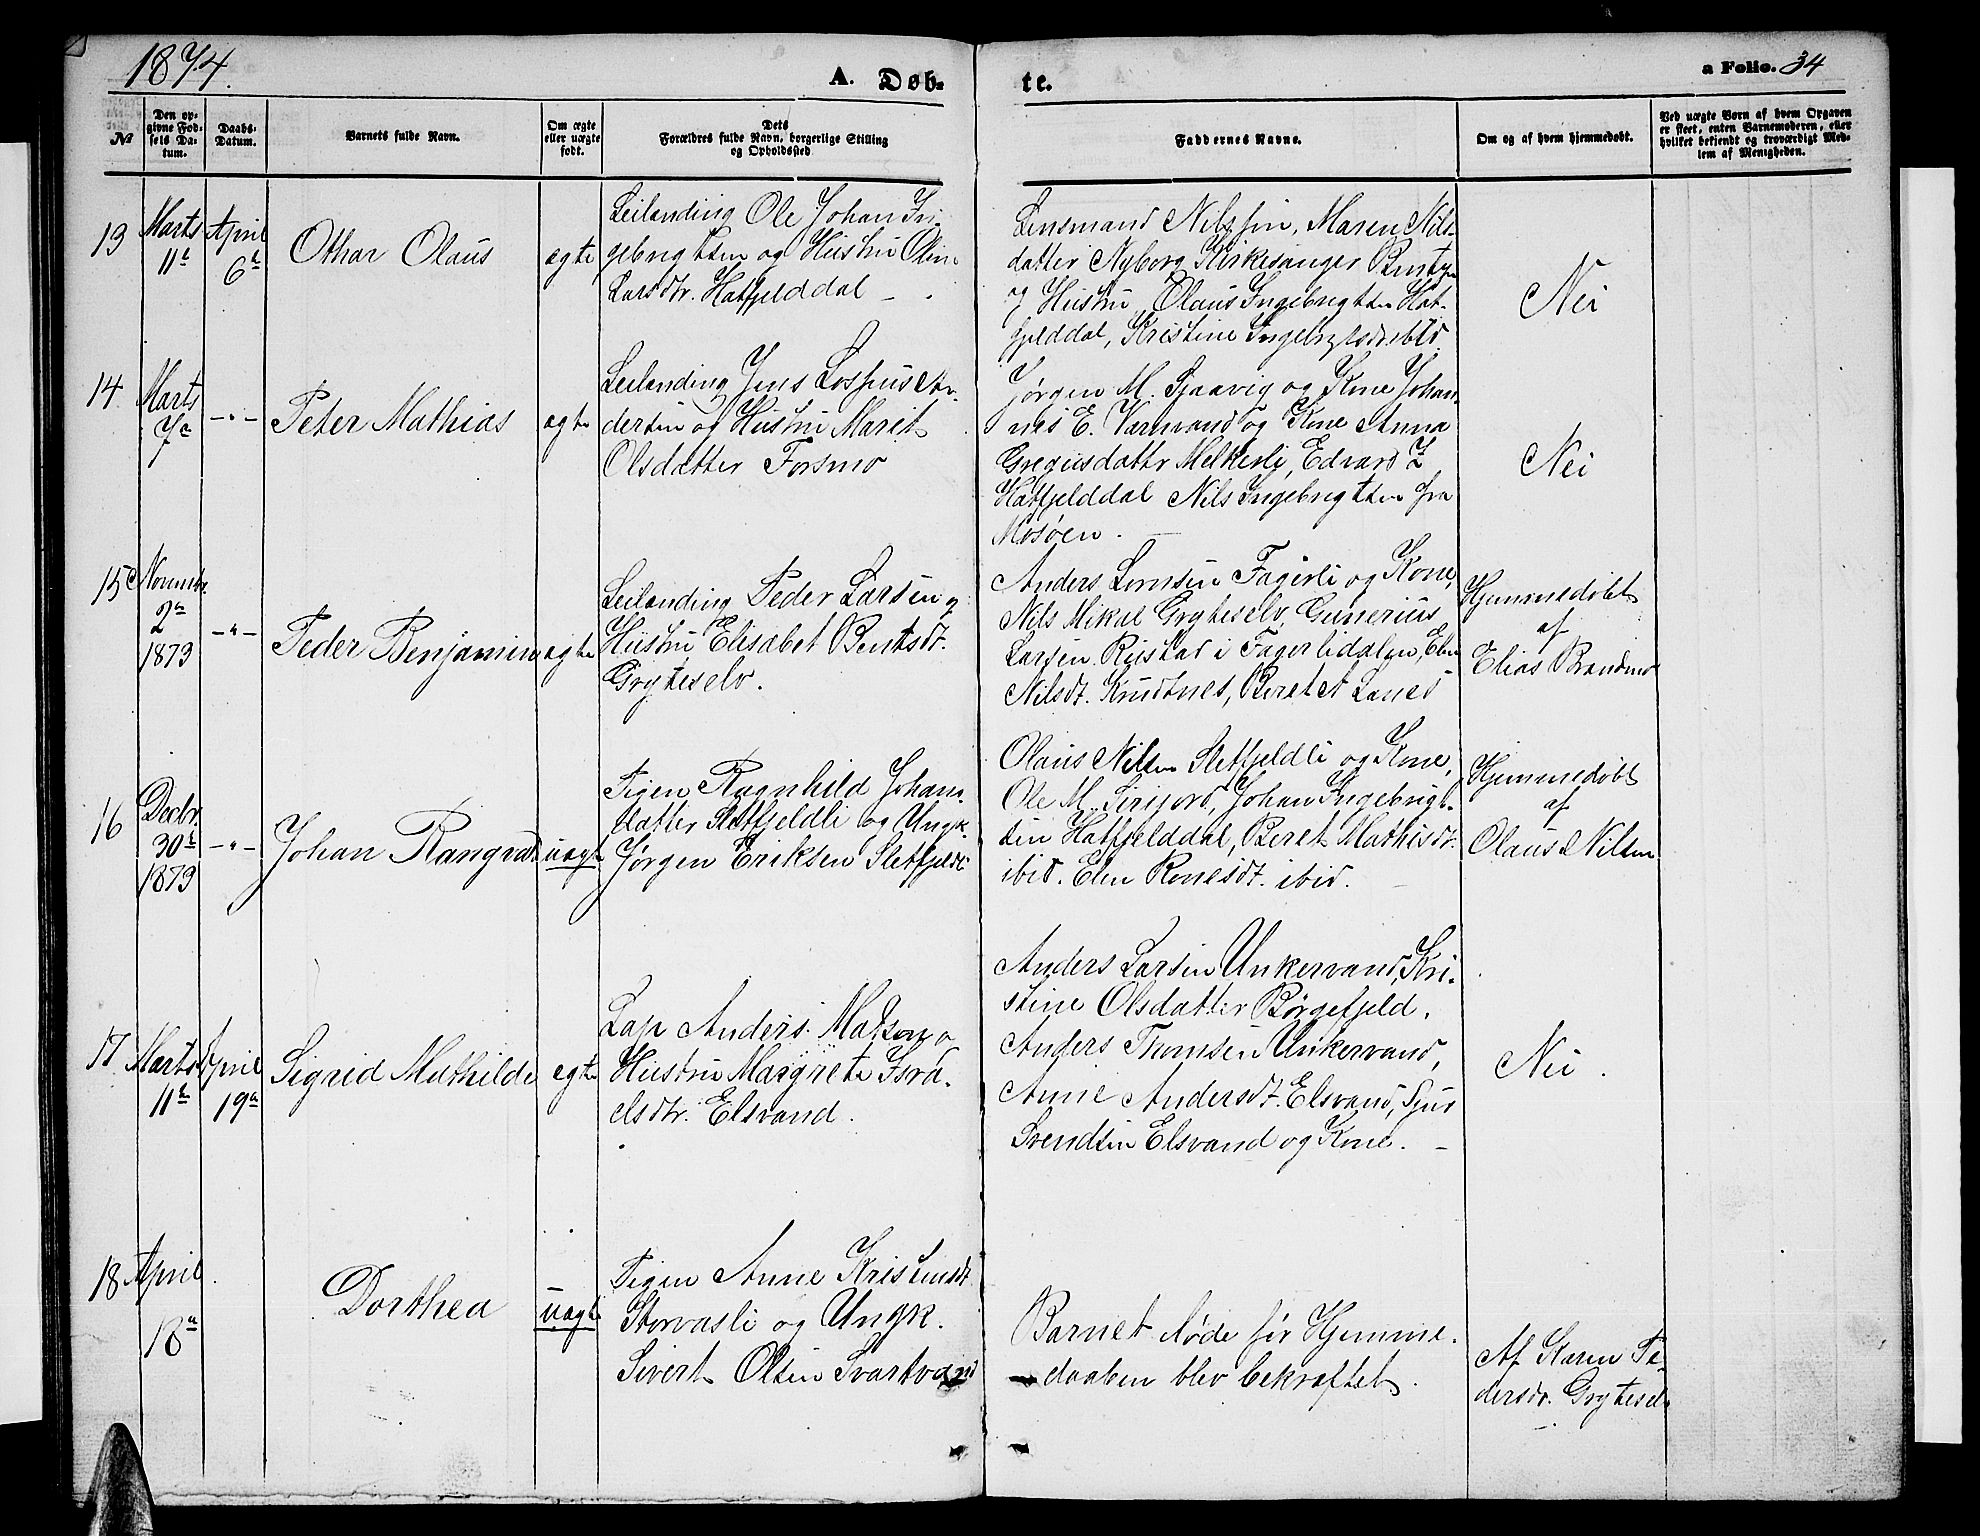 1874.
A. Døb-
te.
a Folio. 34
№
Den op-
givne Fød-
sels Da-
tum.
Daabs-
Datum.
Barnets fulde Navn.
Om ægte
eller uægte
født.
Dets
Forældres fulde Navn, borgerlige Stilling
og Opholdssted
Faddernes Navne.
Om og af hvem hjemmedøbt.
Ved uægte Børn af hvem Opgaven
er skeet, enten Barnemoderen, eller
hvilket bekjendt og troværdigt Med-
lem af Menigheden.
13
Marts
11te
April
6te
Othar Olaus
ægte
Leilending Ole Johan In-
gebrigtsen og Hustru Oline
Larsdtr. Hatfjelddal
Lensmand Nilssen, Maren Nils-
datter Nyborg Kirkesanger
og Hustru, Olaus Ingebrigtsen Hat-
fjelddal, Kristine Ingebrgtsdr. ibid.
Nei
14
Marts
7de
-"-
Peter Mathias
ægte
Leilending Jens
og Hustru Marit
Olsdatter Forsmo
Jørgen M. Sjaavig og Kone, Johan-
nes E. Varnvand og Kone Anna
Gregusdattr Melkerli, Edvard I
Hatfjelddal Nils Ingebrigtsen fra
Mosøen.
Nei
15
Novembr
2den
1873
-"-
Peder Benjamin
ægte
Leilending Peder Larsen og
Hustru Elisabet Bentsdr.
Gryteselv.
Anders Tomsen Fagerli og Kone,
Nils Mikal Gryteselv, Gunerius
Larsen Rustad i Fagerlidalen, Elen
Nilsdt. Knudtnes, Beret A
Hjemmedøbt
af
Elias Brandmo
16
Decbr
30te
1873
-"-
Johan Rangvald
uægte
Pigen Ragnhild Johans-
datter Sletfjeldli og Ungk.
Jørgen Eriksen Sletfjeldl
Olaus Nilsen Sletfjeldli og Kone,
Ole M. Sirijord, Johan Ingebrigt-
sen Hatfjelddal, Beret Mathisdt.
ibid. Elen Ronesdt. ibid.
Hjemmedøbt
af
Olaus Nilsen
17
Marts
11te
April
19de
Sigrid Mathilde
egte
Lap Anders Matson o
Hustru Margrete Isra-
elsdtr. Elsvand.
Anders Larsen Unkervand, Kri-
stine Olsdatter Børgefjeld,
Anders Thomsen Unkervand,
Anne Andersdt. Elsvand, Sjur
Svendsen Elsvand og Kone.
Nei.
18
April
18de
Dorthea
uægte
Pigen Anne Kristensdt
Storvasli og Ungk.
Sivert Olsen Svartvand
Barnet døde før Hjemme-
daaben blev bekræftet.
Af Karen Pe-
dersdr. Gryteselv